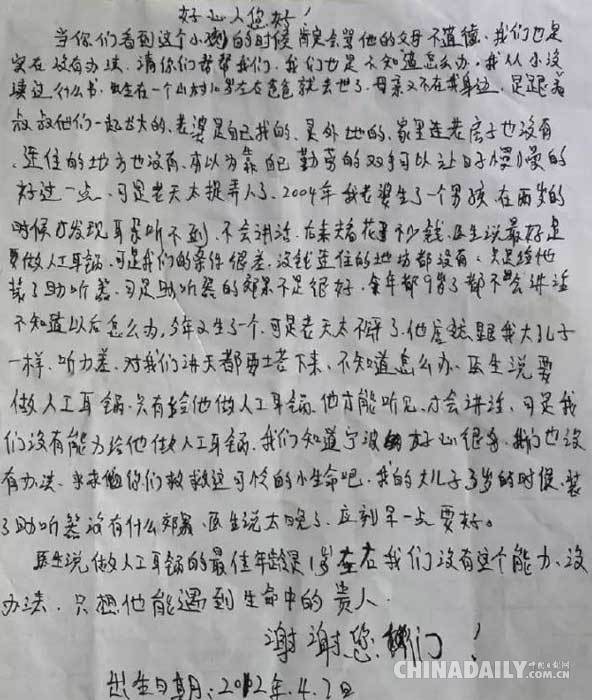 好心人您好!
当你们看到这个小孩的时候肯定会骂他的父母不道德、我们也是
实在没有办法、请你们帮帮我们、我们也是不知道怎么办、我从小没
读过什么书、出生在一个山村10岁左右爸爸就去世了、母亲又不在我身边、是跟着
叔叔他们一起长大的、老婆是自己找的、是外地的、家里连老房子也没有
、连住的地方也没有、本以为靠自己勤劳的双手可以让日子慢慢的
好过一点、可是老天太捉弄人了、2004年我老婆生了一个男孩、在两岁的
时候才发现耳朵听不到、不会讲话、后来花了不少钱、医生说最好是
要做人工耳锅、可是我们的条件很差、没钱连住的地方都没有、只是给他
装了助听器、可是助听器的郊果不是很好、今年都9岁了都不会讲话
不知道以后怎么办、今年又生了一个、可是老天太不公平了、他居然跟我大儿子
一样、听力差、对我们讲天都要塌下来、不知道怎么办、医生说要
做人工耳锅、只有给他做人工耳锅、他才能听见、才会讲话、可是我
们没有能力给他做人工耳锅、我们知道宁波的好心人很多、我们也没
有办法、求求你们救救这可怜的小生命吧、我的大儿子3岁的时候、装
了助听器没有什么郊果、医生说太晚了、应到早一点要好。
医生说做人工耳锅的最佳年龄是1岁左右我们没有这个能力、没
办法、只想他能遇到生命中的贵人、
谢谢您们!
出生日期:2012年.4.2日
中国日报网
CHINADAILY.com.cn